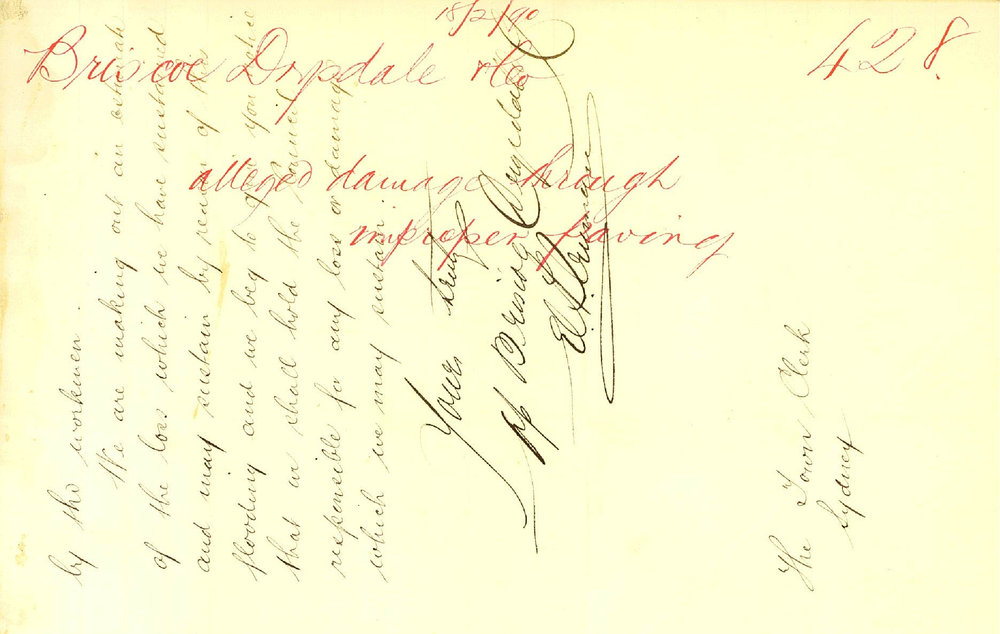 18/2/90
Briscoe Drysdale & Co
428.
alleged damage through
improper paving
by the workmen.
We are making out an estimate
of the loss which we have sustained
and may sustain by reason of the
flooding and we beg to give you notice
that we shall hold the Council
responsible for any loss or damage
which we may sustain.
Yours truly
pp Briscoe Drysdale & Co
The Town Clerk
Sydney